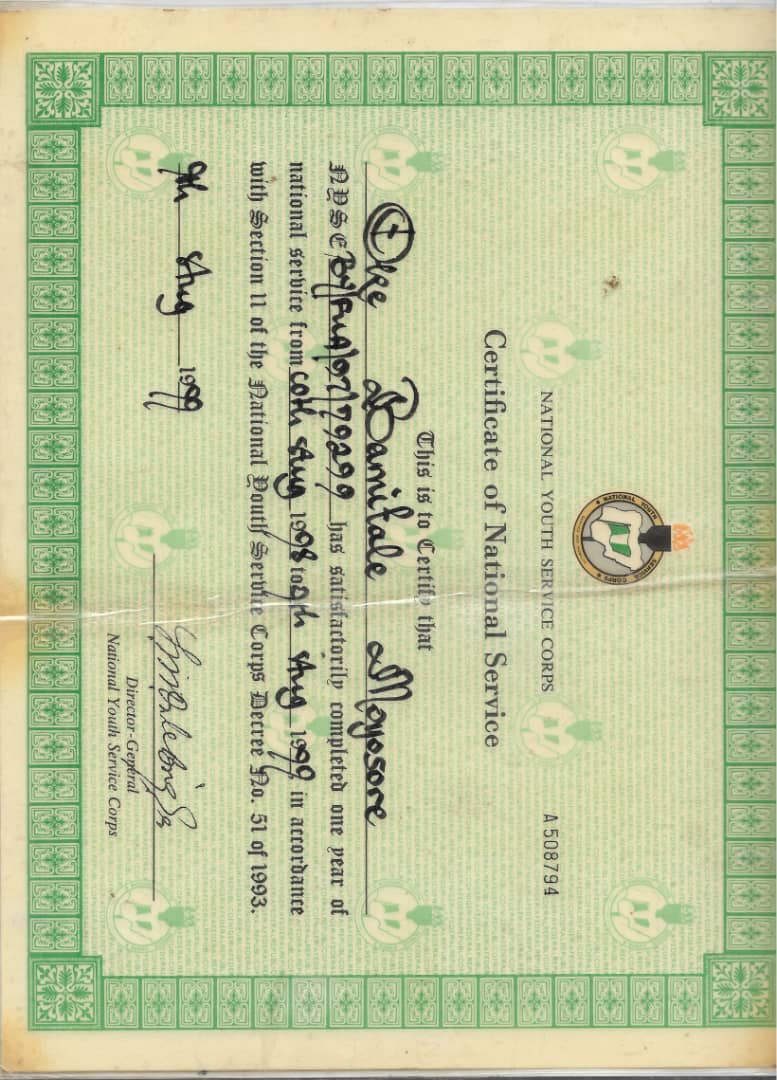 NATIONAL YOUTH SERVICE CORPS
NATIONAL YOUTH SERVICE CORPS
A 508794
Certificate of National Service
This is to Certify that
Oke Bamitale Moyosore
NYSC/BY/RUA/97/79299 has satisfactorily completed one year of
national service from Aug 1998 to 9th Aug 1999 in accordance
with Section 11 of the National Youth Service Corps Decree No. 51 of 1993.
9th Aug 1999
Director-General
National Youth Service Corps